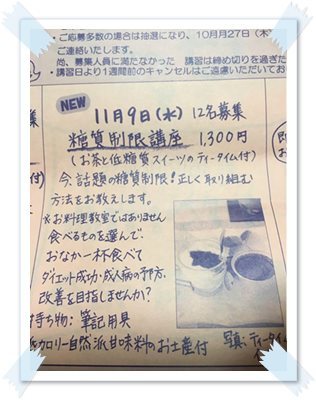 ・ご応募多数の場合は抽選になり、10月27日(木
ご連絡いたします。
尚、募集人員に満たなかった 講習は締め切りを過ぎた
・講習日より1週間前のキャンセルはご遠慮いただいてお
NEW
11月9日(水) 12名募集
糖質制限講座 1,300円
(お茶と低糖質スイーツのティータイム付)
今、話題の糖質制限!正しく取り組む
方法をお教えします。
※お料理教室ではありません
食べるものを選んで、
おなか一杯食べて
ダイエット成功・成人病の予防、
改善を目指しませんか?
持ち物:筆記用具
カロリー自然派甘味料のお土産付
写真:ティータイム